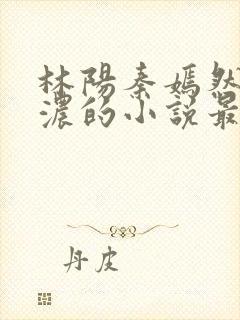 林陽秦嫣然
濃的小說最
丹皮